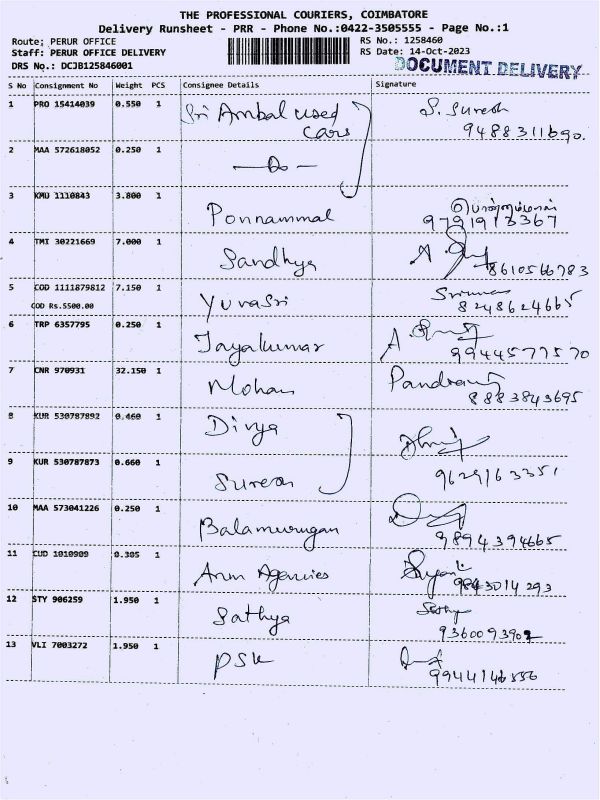 THE PROFESSIONAL COURIERS, COIMBATORE
Delivery Runsheet - PRR - Phone No.:0422-3505555 - Page No.:1
Route; PERUR OFFICE RS No.: 1258460
Staff: PERUR OFFICE DELIVERY RS Date: 14-Oct-2023
DRS No.: DCJB125846001 DOCUMENT DELIVERY
S No Consignment No Weight PCS Consignee Details Signature
1 PRO 15414039 0.550 1 Sri Ambal used S. Suresh
cars 9488311690.
2 MAA 572618052 0.250 1
3 KMU 1110843 3.800 1 Ponnammal பொன்னம்மாள்
9791913367
4 TMI 30221669 7.000 1 Sandhya
8610566783
5 COD 1111879812 7.150 1 Yuvasri
COD Rs.5500.00 8248624665
6 TRP 6357795 0.250 1 Jayakumar
9944577570
7 CNR 970931 32.150 1 Mohan
8883843695
8 KUR 530787892 0.460 1 Divya
9 KUR 530787873 0.660 1 Suresh 9629163351
10 MAA 573041226 0.250 1 Balamurugan
9894394665
11 CUD 1010909 0.305 1 Arun Agencies
9843014293
12 STY 906259 1.950 1 Sathya Sathy
9360093902
13 VLI 7003272 1.950 1 PSK
9944146556